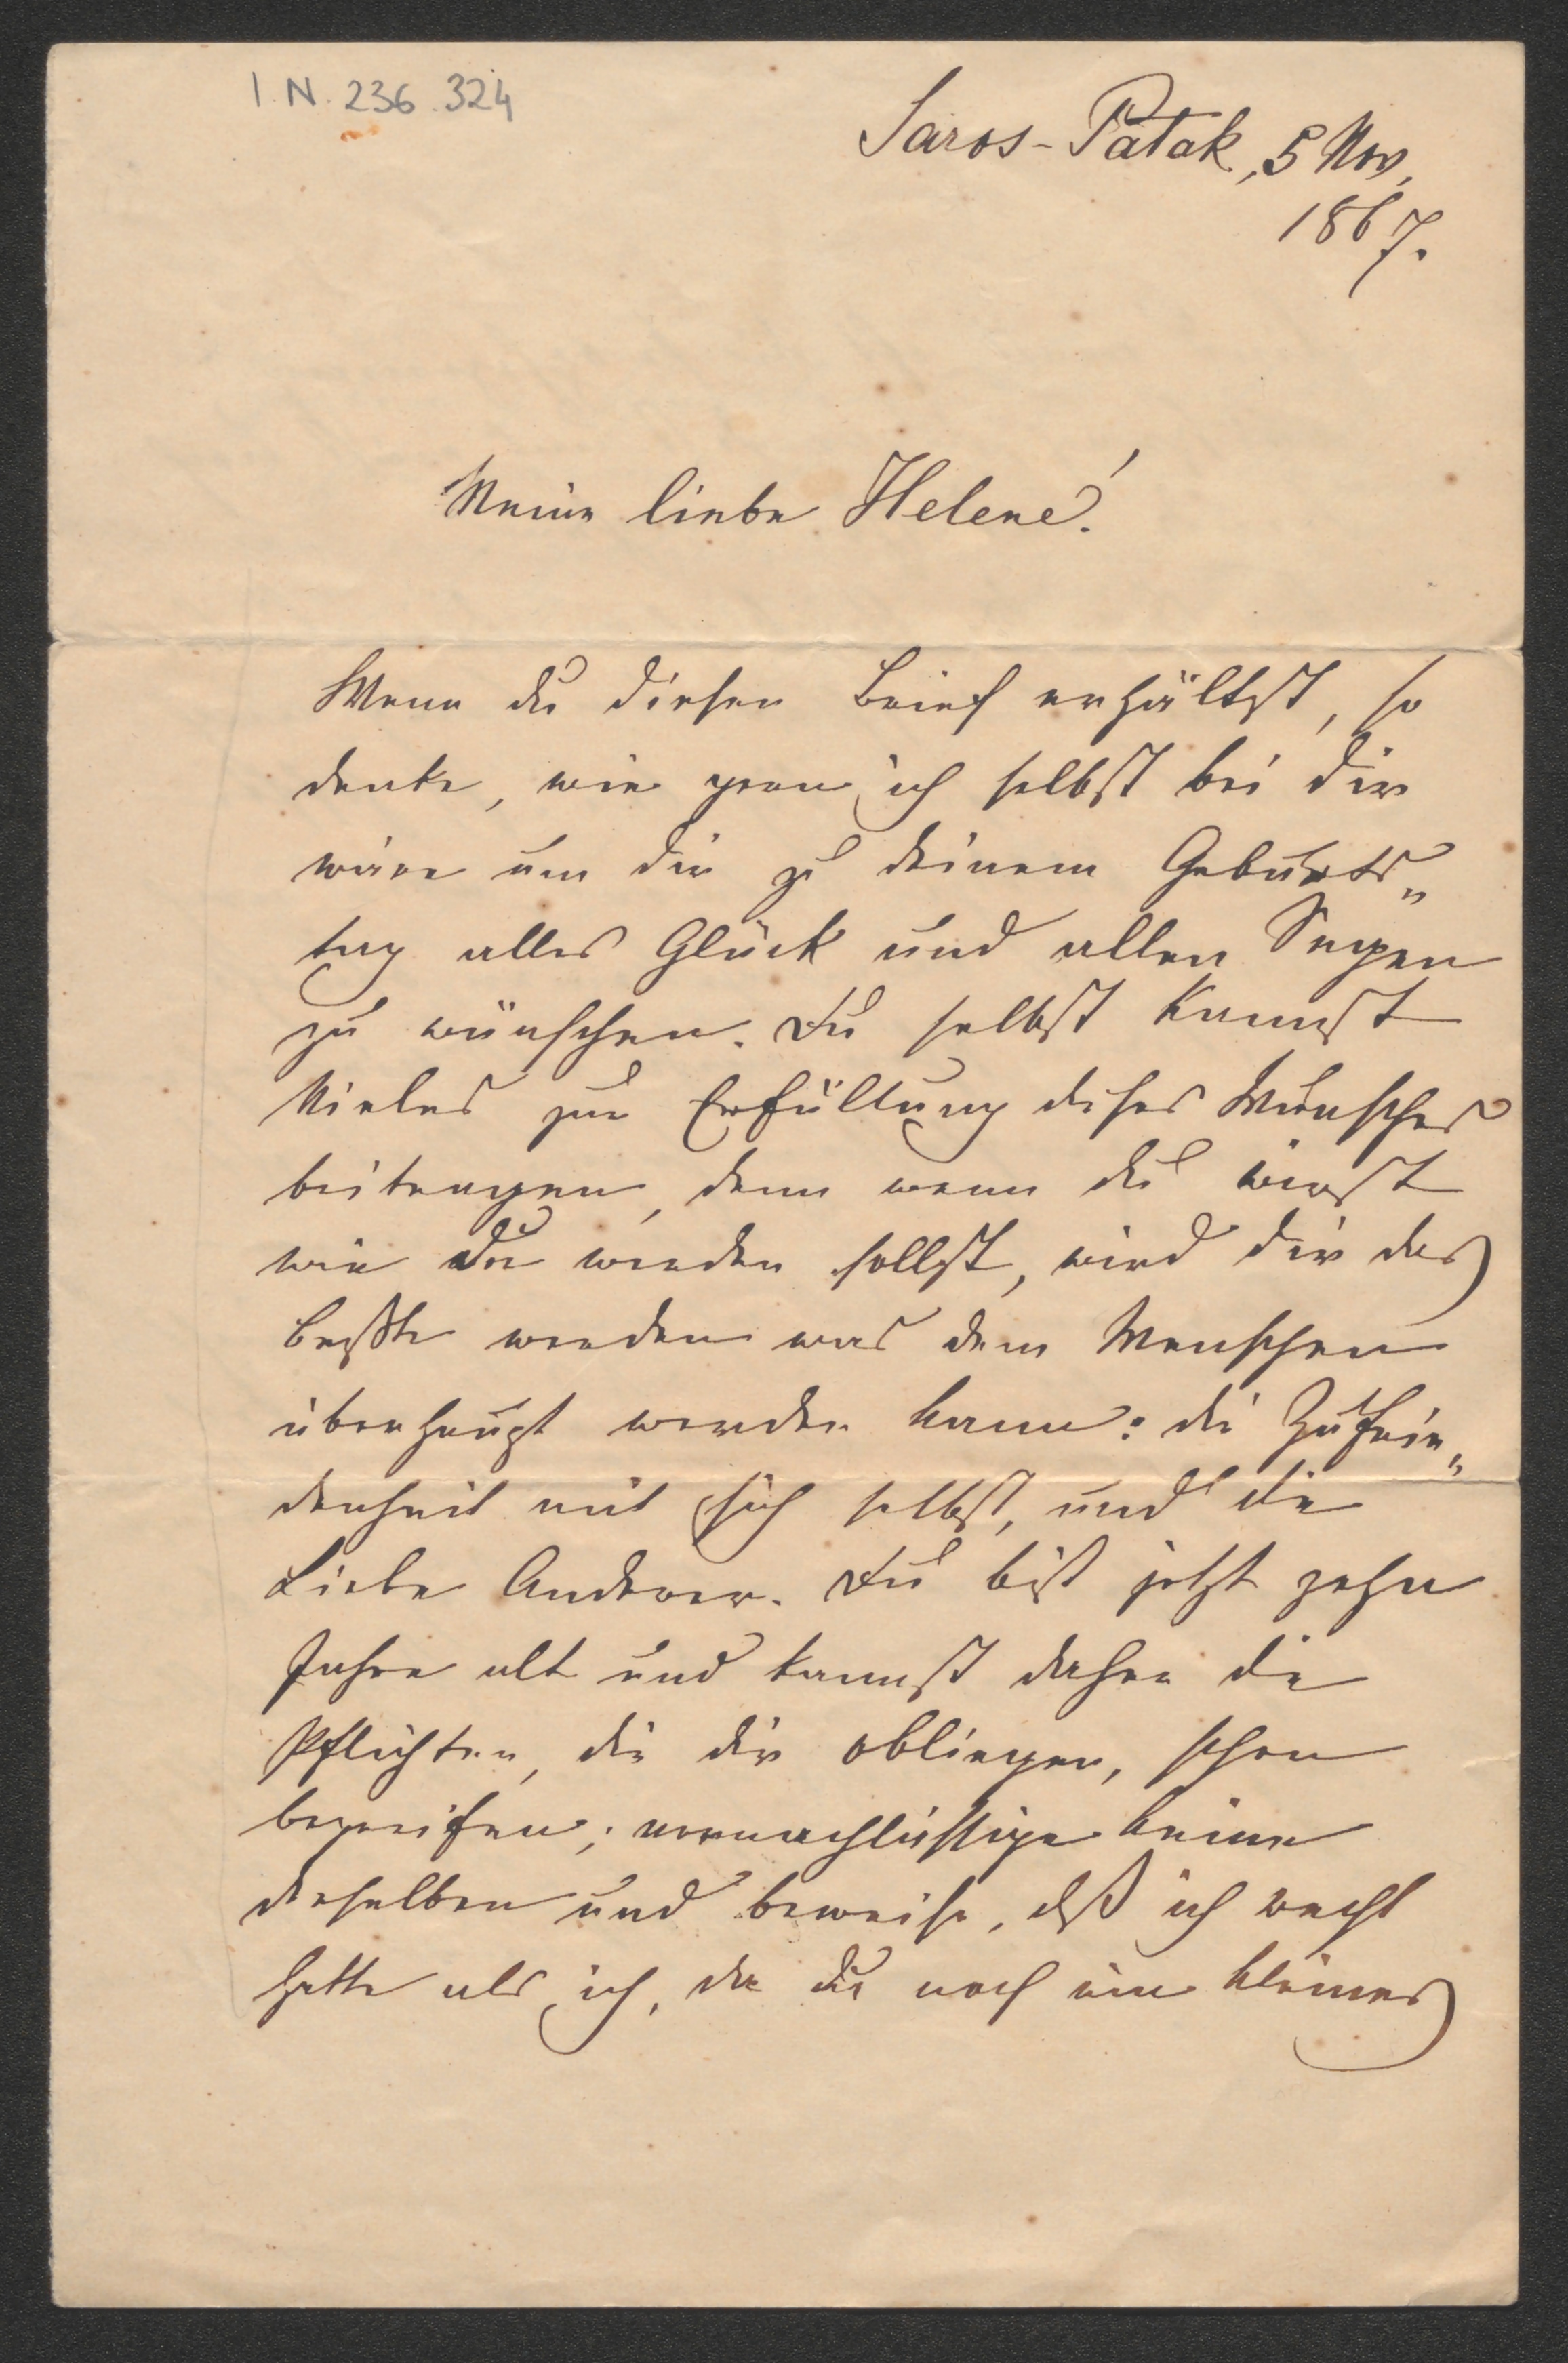 I.N. 236.324
Saros-Patak, 5 Nov,
1867.
Meine liebe Helene!
Wenn du diesen Brief erhältst, so
denke, wie gern ich selbst bei dir
wäre um dir zu deinem Geburts„
tag alles Glück und allen Segen
zu wünschen. Du selbst kannst
Vieles zur Erfüllung dises Wunsches
beitragen, denn wenn du wirst
wie du werden sollst, wird dir das
beßte werden was dem Menschen
überhaupt werden kann: die Zufrie„
denheit mit sich selbst, und die
Liebe Anderer. Du bist jetzt zehn
Jahre alt und kannst daher die
Pflichten, die dir obliegen, schon
begreifen; vernachlässige keine
derselben und beweise, daß ich recht
hatte als ich, da du noch ein kleines